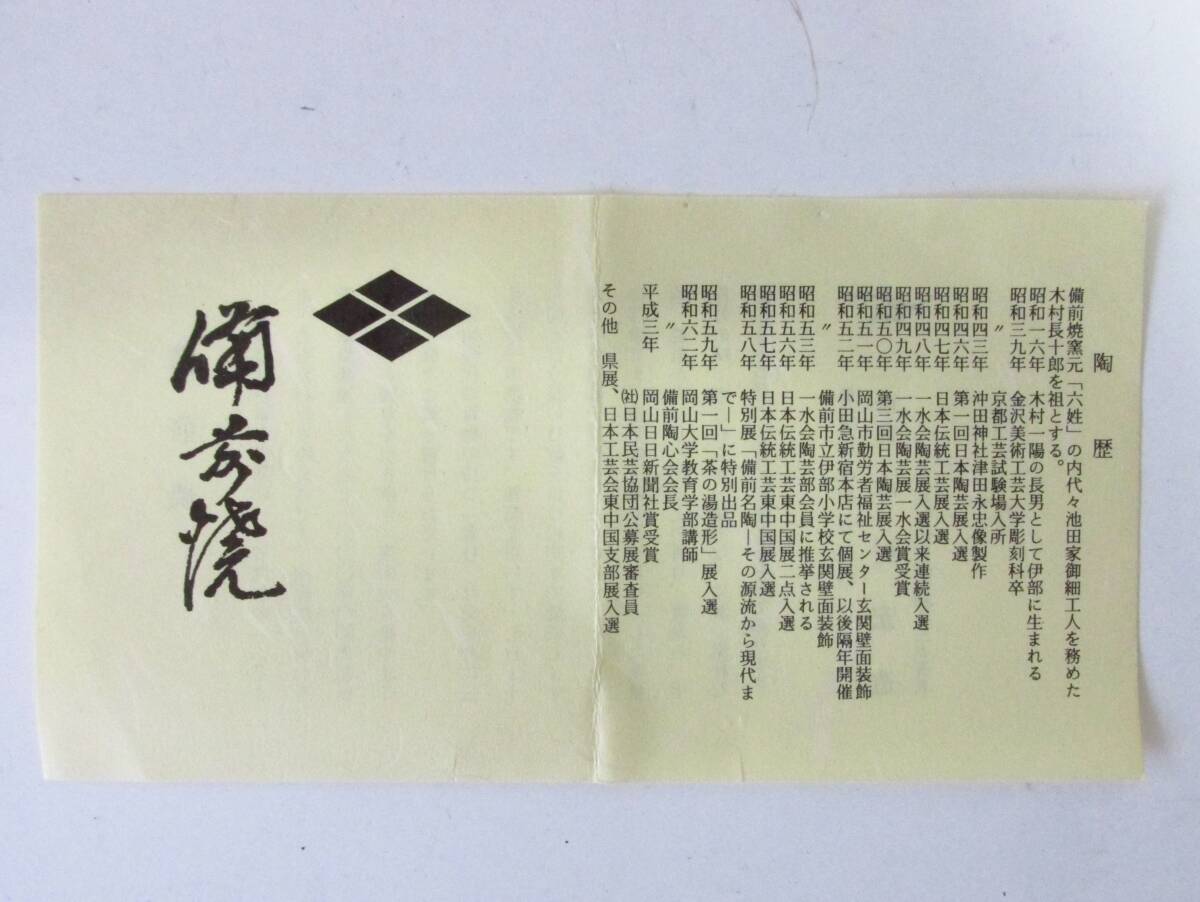 陶歴
備前焼窯元「六姓」の内代々池田家御細工人を務めた
木村長十郎を祖とする。
昭和一六年 木村一陽の長男として伊部に生まれる
昭和三九年 金沢美術工芸大学彫刻科卒
〃 京都工芸試験場入所
昭和四三年 沖田神社津田永忠像製作
昭和四六年 第一回日本陶芸展入選
昭和四七年 日本伝統工芸展入選
昭和四八年 一水会陶芸展入選以来連続入選
昭和四九年 一水会陶芸展一水会賞受賞
昭和五〇年 第三回日本陶芸展入選
昭和五一年 岡山市勤労者福祉センター玄関壁面装飾
昭和五二年 小田急新宿本店にて個展、以後隔年開催
〃 備前市立伊部小学校玄関壁面装飾
昭和五三年 一水会陶芸部会員に推挙される
昭和五六年 日本伝統工芸東中国展二点入選
昭和五七年 日本伝統工芸東中国展入選
昭和五八年 特別展「備前名陶ーその源流から現代ま
でー」に特別出品
昭和五九年 第一回「茶の湯造形」展入選
昭和六二年 岡山大学教育学部講師
〃 備前陶心会会長
平成三年 岡山日日新聞社賞受賞
㈳日本民芸協団公募展審査員
その他 県展、日本工芸会東中国支部展入選
備前焼